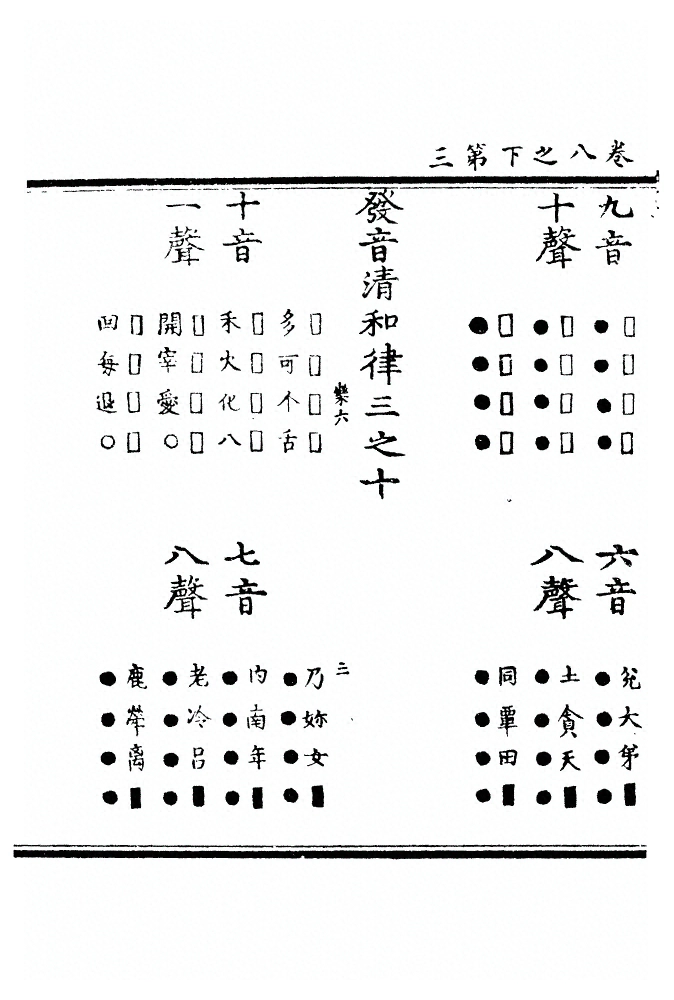 卷八之下第三
九音
十聲
●□ ●□ ●□ ●□
●□ ●□ ●□ ●□
●□ ●□ ●□ ●□
六音
八聲
●兊 ●大 ●弟 ●■
●土 ●貪 ●天 ●■
●同 ●覃 ●田 ●■
發音清和律三之十
樂六
十音
一聲
多□ 可□ 个□ 舌□
禾□ 火□ 化□ 八□
開□ 宰□ 愛□ ○□
回□ 每□ 退□ ○□
三
七音
八聲
●乃 ●妳 ●女 ●■
●内 ●南 ●年 ●■
●老 ●冷 ●吕 ●■
●鹿 ●犖 ●离 ●■